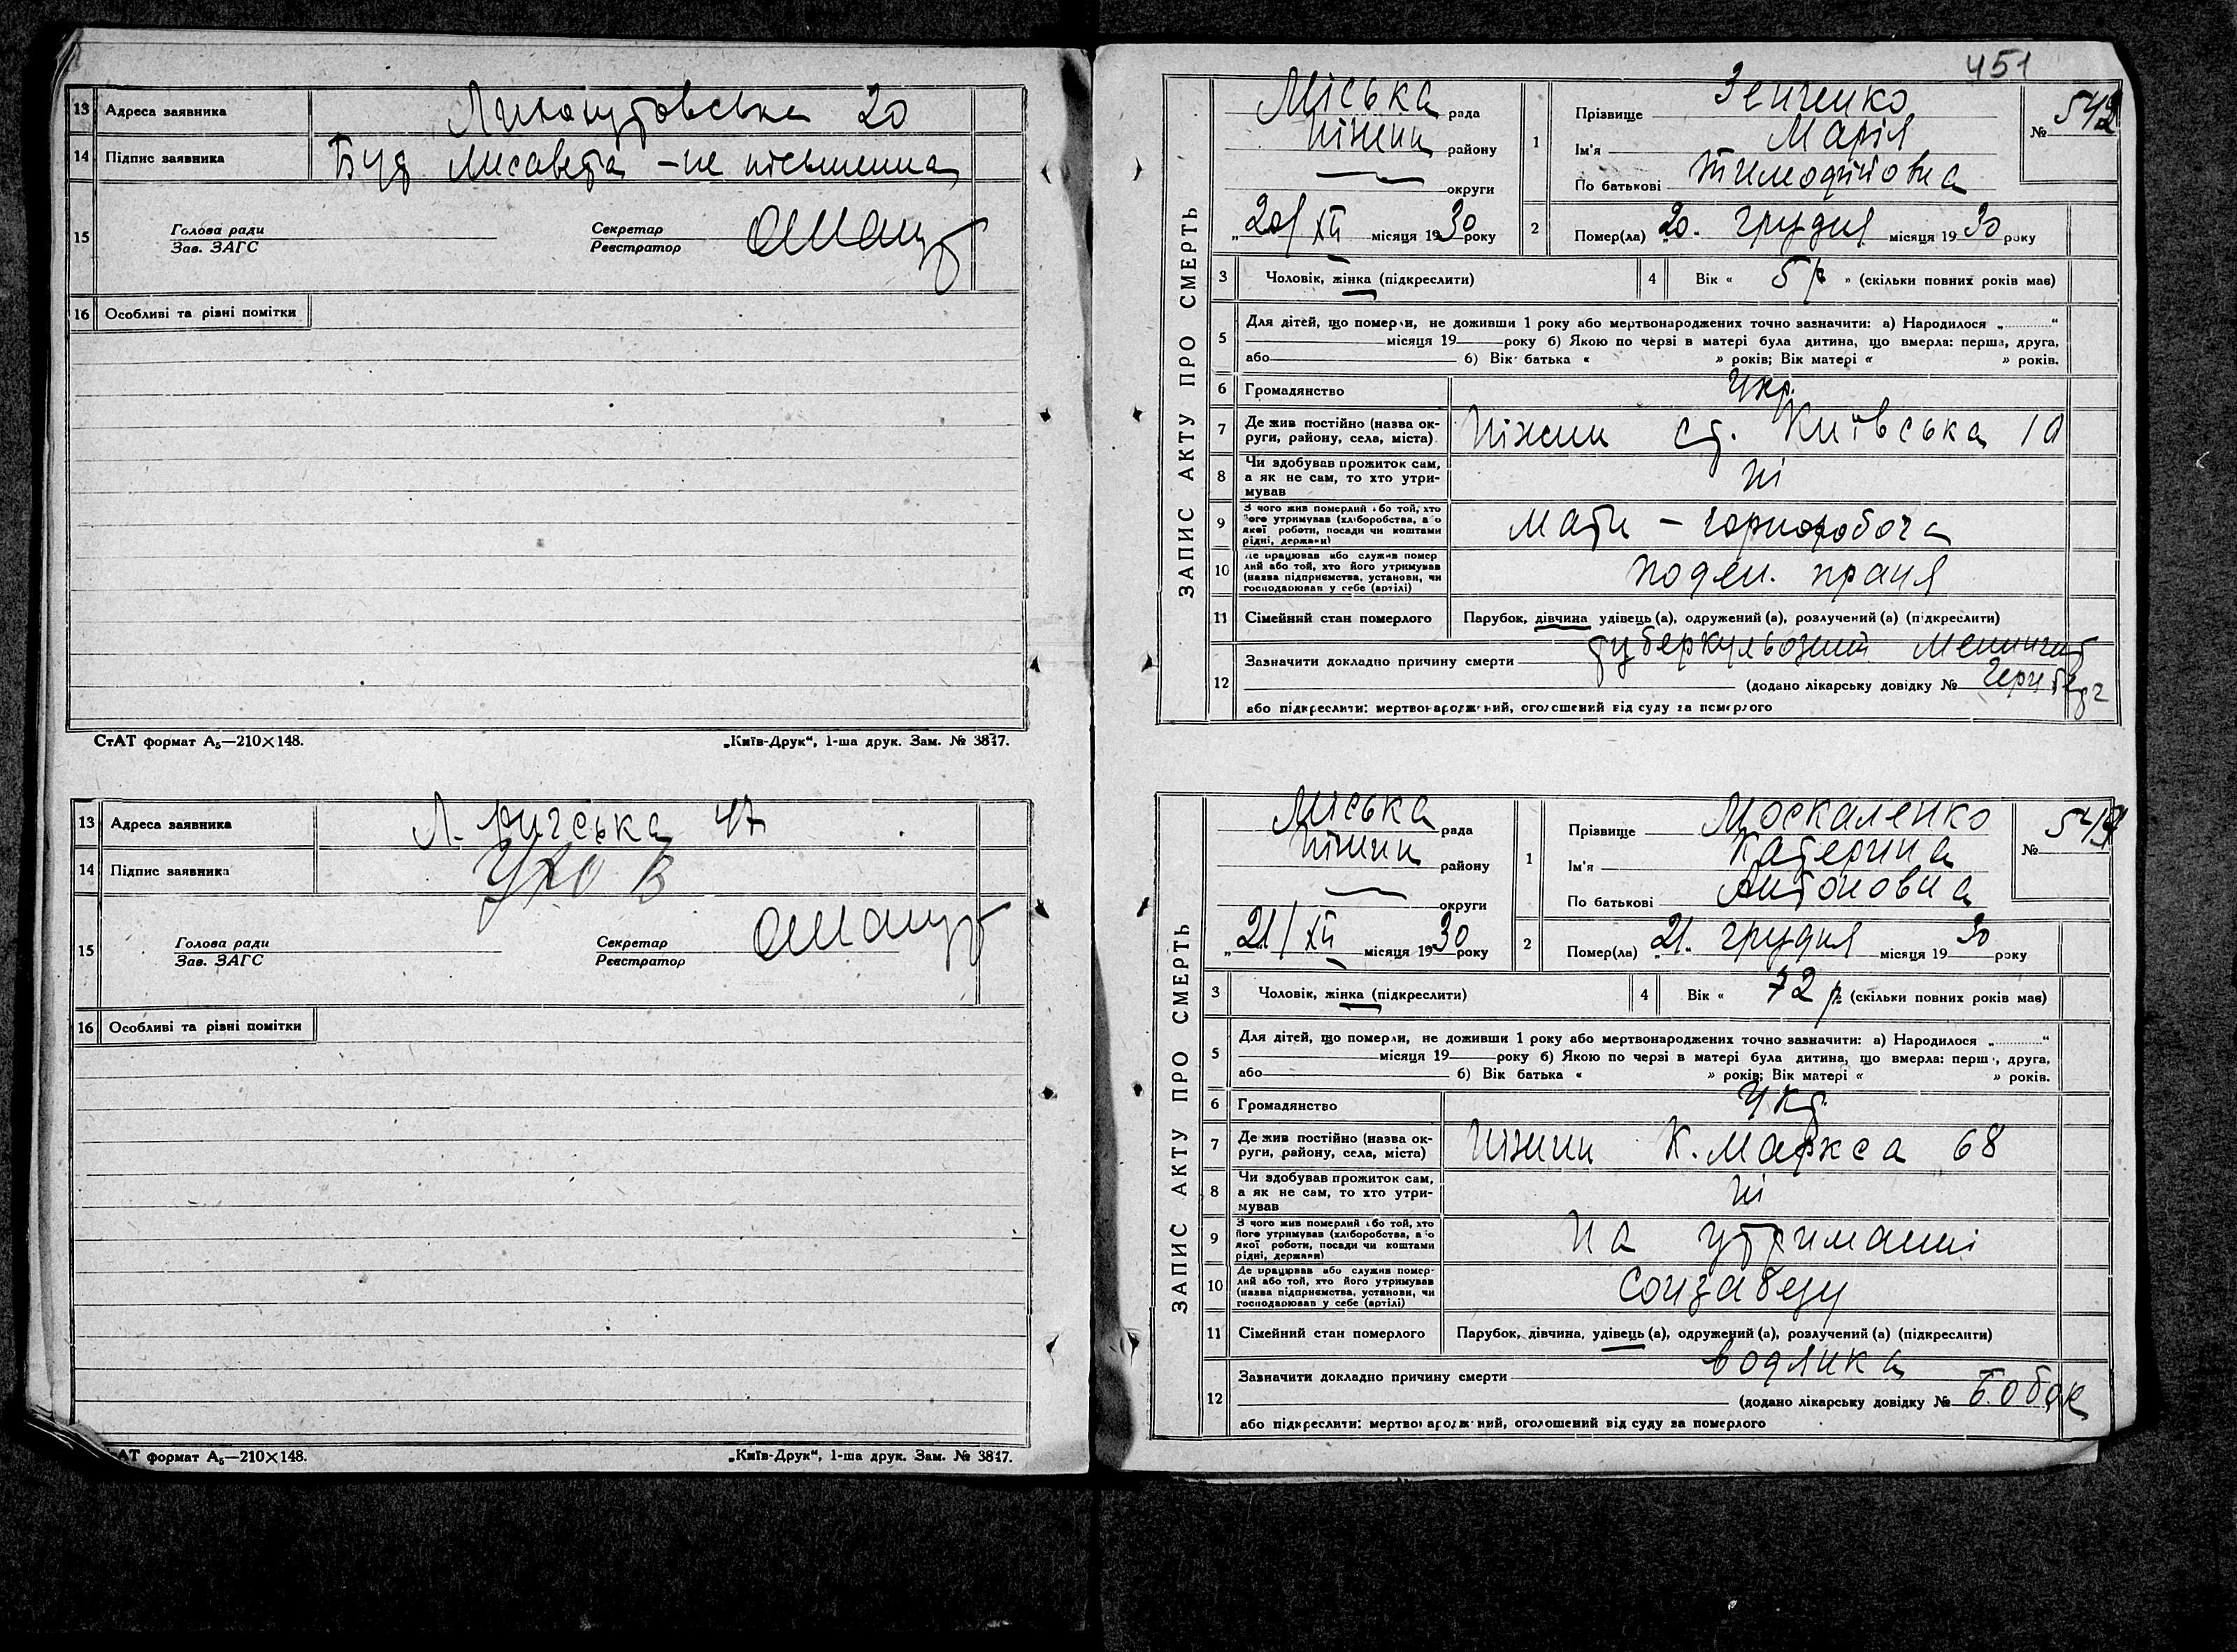 13 Адреса заявника 20
14 Підпис заявника Буд Лисавета – не пісьменна
15 Голова ради
Зав. ЗАГС
Секретар
Реєстратор
16 Особливі та різні помітки
СтАТ формат А₅—210×148. „Київ-Друк“, 1-ша друк. Зам. № 3817.
13 Адреса заявника 47
14 Підпис заявника
15 Голова ради
Зав. ЗАГС
Секретар
Реєстратор
16 Особливі та різні помітки
АТ формат А₅—210×148. „Київ-Друк“, 1-ша друк. Зам. № 3817.
451
ЗАПИС АКТУ ПРО СМЕРТЬ
Міська рада
Ніжин району
округи
„20/XII місяця 1930 року
1 Прізвище Зенченко
Ім'я Марія
По батькові Тимофіївна
№ 542
2 Помер(ла) „20. грудня місяця 1930 року
3 Чоловік, жінка (підкреслити)
4 Вік « 5 р » (скільки повних років має)
5 Для дітей, що померли, не доживши 1 року або мертвонароджених точно зазначити: а) Народилося „ “
місяця 19 року б) Якою по черзі в матері була дитина, що вмерла: перша, друга,
або б) Вік батька « » років; Вік матері « » років.
6 Громадянство Укр.
7 Де жив постійно (назва ок-
руги, району, села, міста) Ніжин ст. Київська 10
8 Чи здобував прожиток сам,
а як не сам, то хто утри-
мував Ні
9 З чого жив померлий або той, хто
його утримував (хліборобства, або
якої роботи, посади чи коштами
рідні, держави) Мати – чорноробоча
10 Де працював або служив помер
лий або той, хто його утримував
(назва підприємства, установи, чи
господарював у себе (артілі) поден. праця
11 Сімейний стан померлого Парубок, дівчина удівець (а), одружений (а), розлучений (а) (підкреслити)
12 Зазначити докладно причину смерти туберкульозний менингит
(додано лікарську довідку №
або підкреслити: мертвонароджений, оголошений від суду за померлого
ЗАПИС АКТУ ПРО СМЕРТЬ
Міська рада
Ніжин району
округи
„21/XII місяця 1930 року
1 Прізвище Москаленко
Ім'я Катерина
По батькові Антоновна
№
2 Помер(ла) „21. грудня місяця 1930 року
3 Чоловік, жінка (підкреслити)
4 Вік « 72 р. (скільки повних років має)
5 Для дітей, що померли, не доживши 1 року або мертвонароджених точно зазначити: а) Народилося „ “
місяця 19 року б) Якою по черзі в матері була дитина, що вмерла: перша, друга,
або б) Вік батька « » років; Вік матері « » років.
6 Громадянство Укр
7 Де жив постійно (назва ок-
руги, району, села, міста) Ніжин К. Маркса 68
8 Чи здобував прожиток сам,
а як не сам, то хто утри-
мував Ні
9 З чого жив померлий або той, хто
його утримував (хліборобства, або
якої роботи, посади чи коштами
рідні, держави) На утриманні
10 Де працював або служив помер-
лий або той, хто його утримував
(назва підприємства, установи, чи
господарював у себе (артілі) Сонзабезу
11 Сімейний стан померлого Парубок, дівчина, удівець (а), одружений (а), розлучений (а) (підкреслити)
12 Зазначити докладно причину смерти водянка
(додано лікарську довідку № Бобок
або підкреслити: мертвонароджений, оголошений від суду за померлого